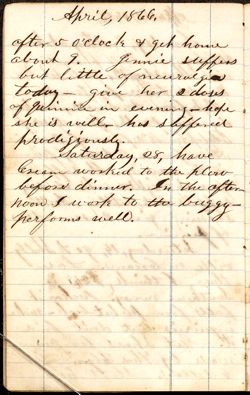 April, 1866.
after 5 o'clock & get home
about 9. Jennie suffers
but little of neuralgia
today - give her 2 doses
of quinine in evening - hope
she is well - has suffered
prodigiously.
Saturday, 28, have
worked to the plow
before dinner. In the after
noon I work to the buggy -
performs well.